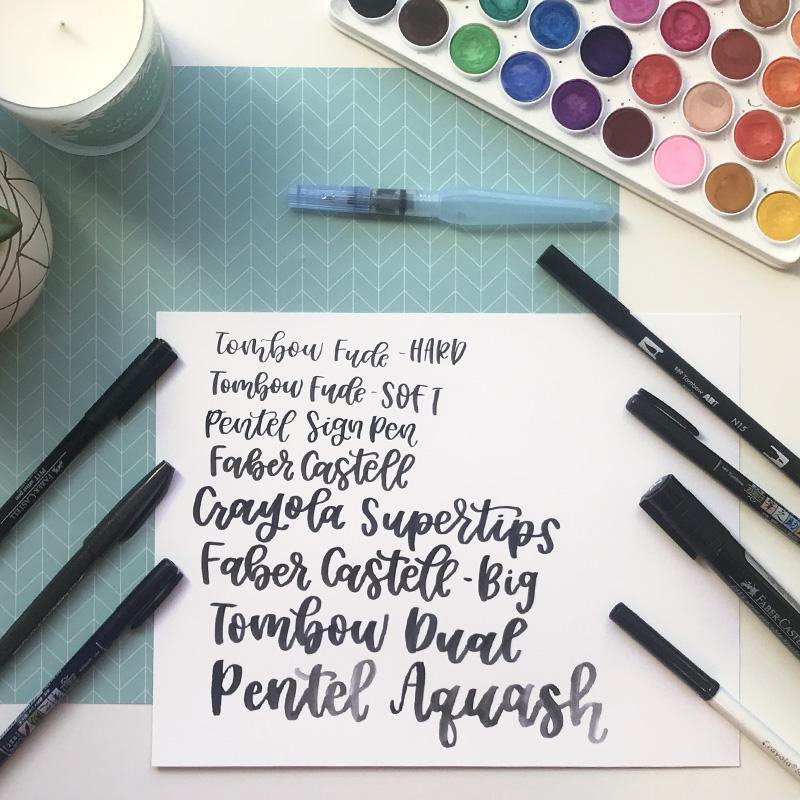 Tombow Fude - HARD
Tombow Fude - SOFT
Pentel Sign Pen
Faber Castell
Crayola Supertips
Faber Castell - Big
Tombow Dual
Pentel Aquash
Tombow ABT
N15
FABER-CASTELL
FABER-CASTE
Crayola